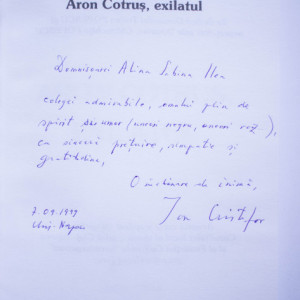 Aron Cotruș, exilatul
Domnișoarei Alina Sabina Ilea
colegei admirabile, omului plin de
spirit și umor (uneori negru, uneori roz),
cu sinceră prețuire, simpatie și
gratitudine,
O închinare de inimă,
Ion Cristofor
7.09.1999
Cluj-Napoca